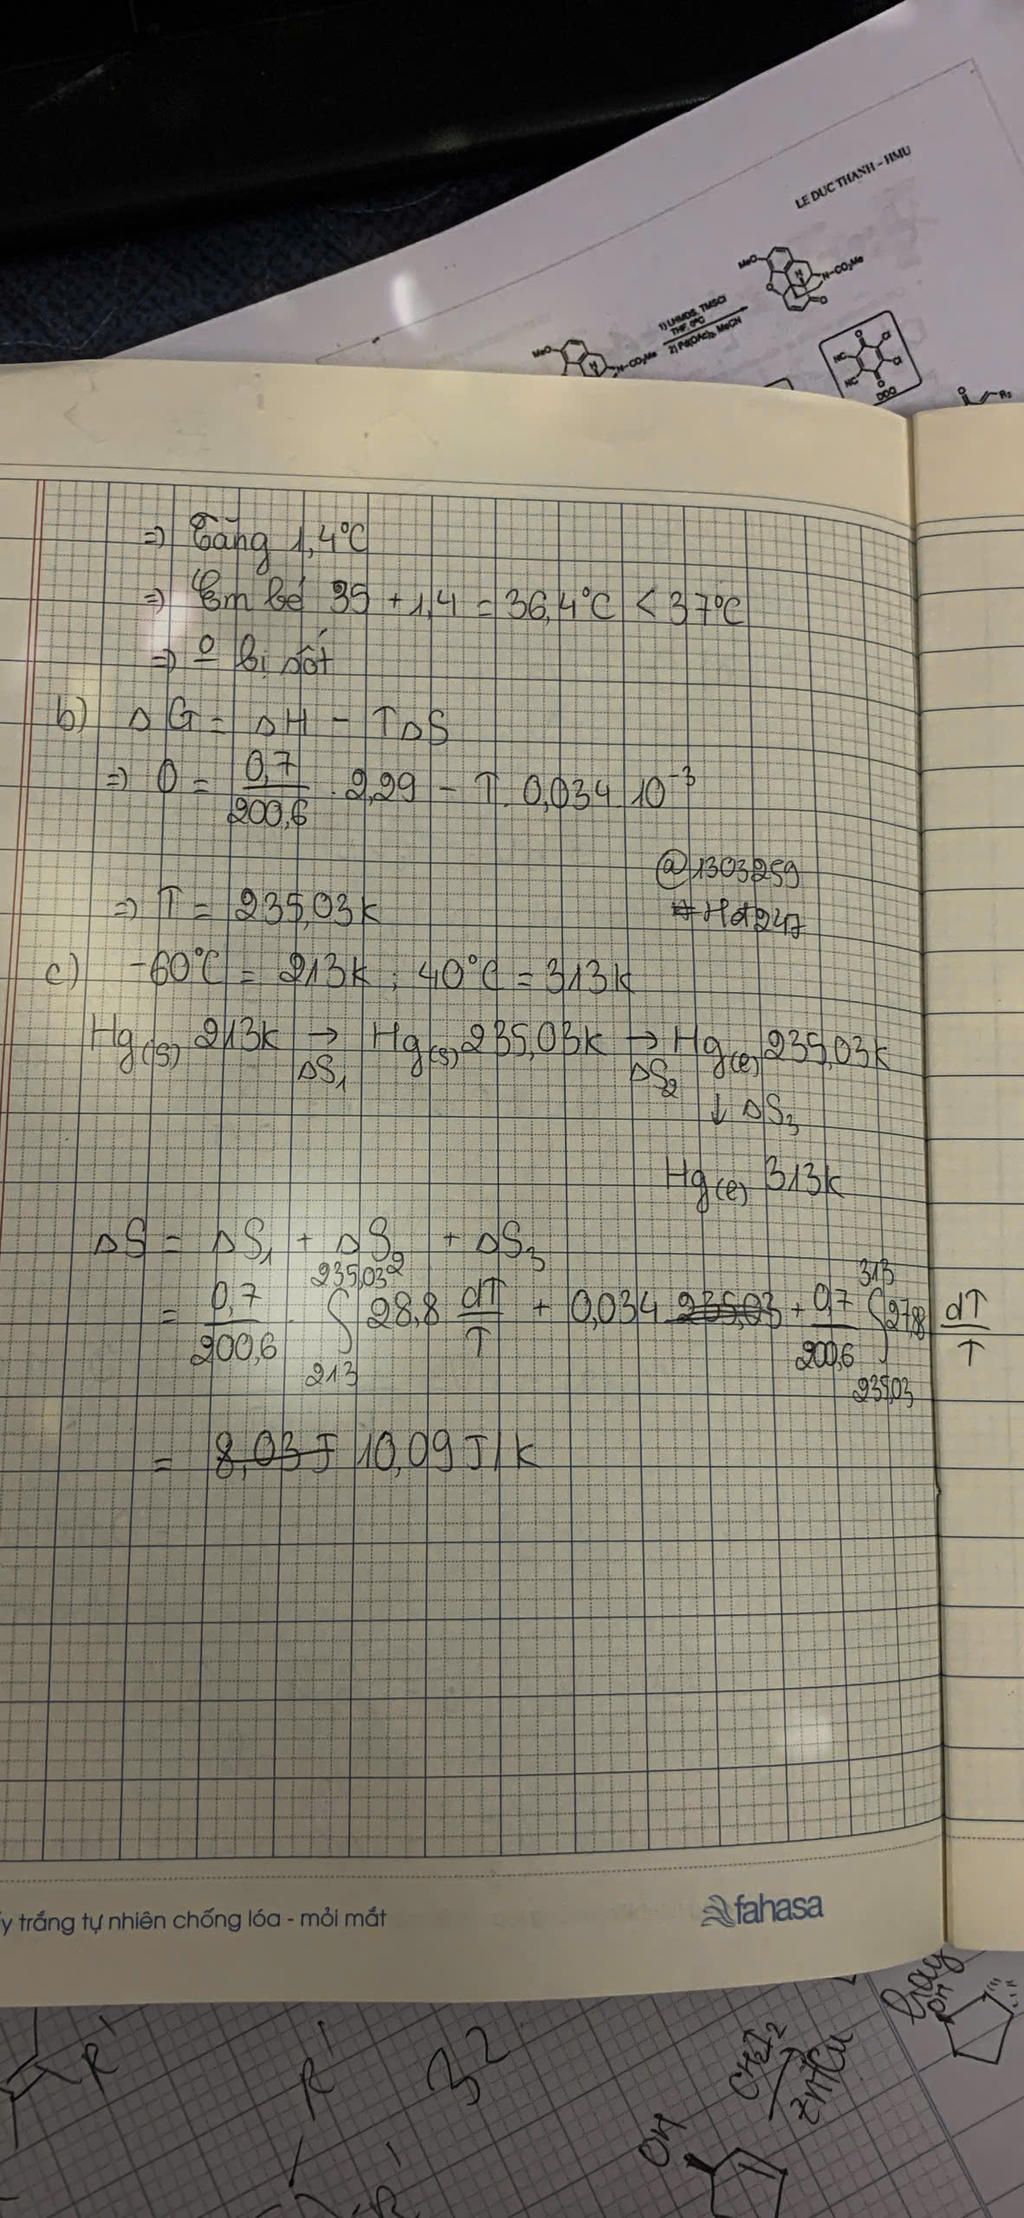 LE DUC THANH – HMU
MeO
N-CO₂Me
1) LHMDS, TMSCl
THF, 0°C
2) Pd(OAc)₂, MeCN
MeO
N
N-CO₂Me
O
O
NC
Cl
NC
Cl
O
DDQ
O
R₃
⇒ Tăng 1,4°C
⇒ Em bé 35 + 1,4 = 36,4°C < 37°C
⇒ 0̲ bị sốt
b) ΔG = ΔH - TΔS
⇒ 0 = 0,7/200,6 . 2,29 - T. 0,034.10⁻³
@1303259
#Hd247
⇒ T = 235,03K
c) -60°C = 213K ; 40°C = 313K
Hg(s) 213K → Hg(s) 235,03K → Hg(l) 235,03K
ΔS₁ ΔS₂
↓ ΔS₃
Hg(l) 313K
ΔS = ΔS₁ + ΔS₂ + ΔS₃
= 0,7/200,6 . ∫₂₁₃^235,03 28,8 dT/T + 0,034 235,03 + 0,7/200,6 ∫₂₃₅,₀₃^313 27,8 dT/T
= 8,03 J 10,09 J/K
y trắng tự nhiên chống lóa - mỏi mắt
fahasa
R'
R'
32
CH₂I₂
Zn/Cu
hay
OH
OH
R'